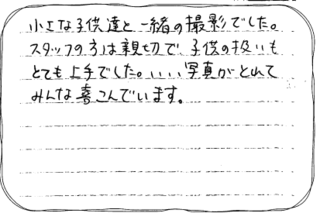 小さな子供達と一緒の撮影でした。
スタッフの方は親切で、子供の扱いも
とても上手でした。いい写真がとれて
みんな喜こんでいます。